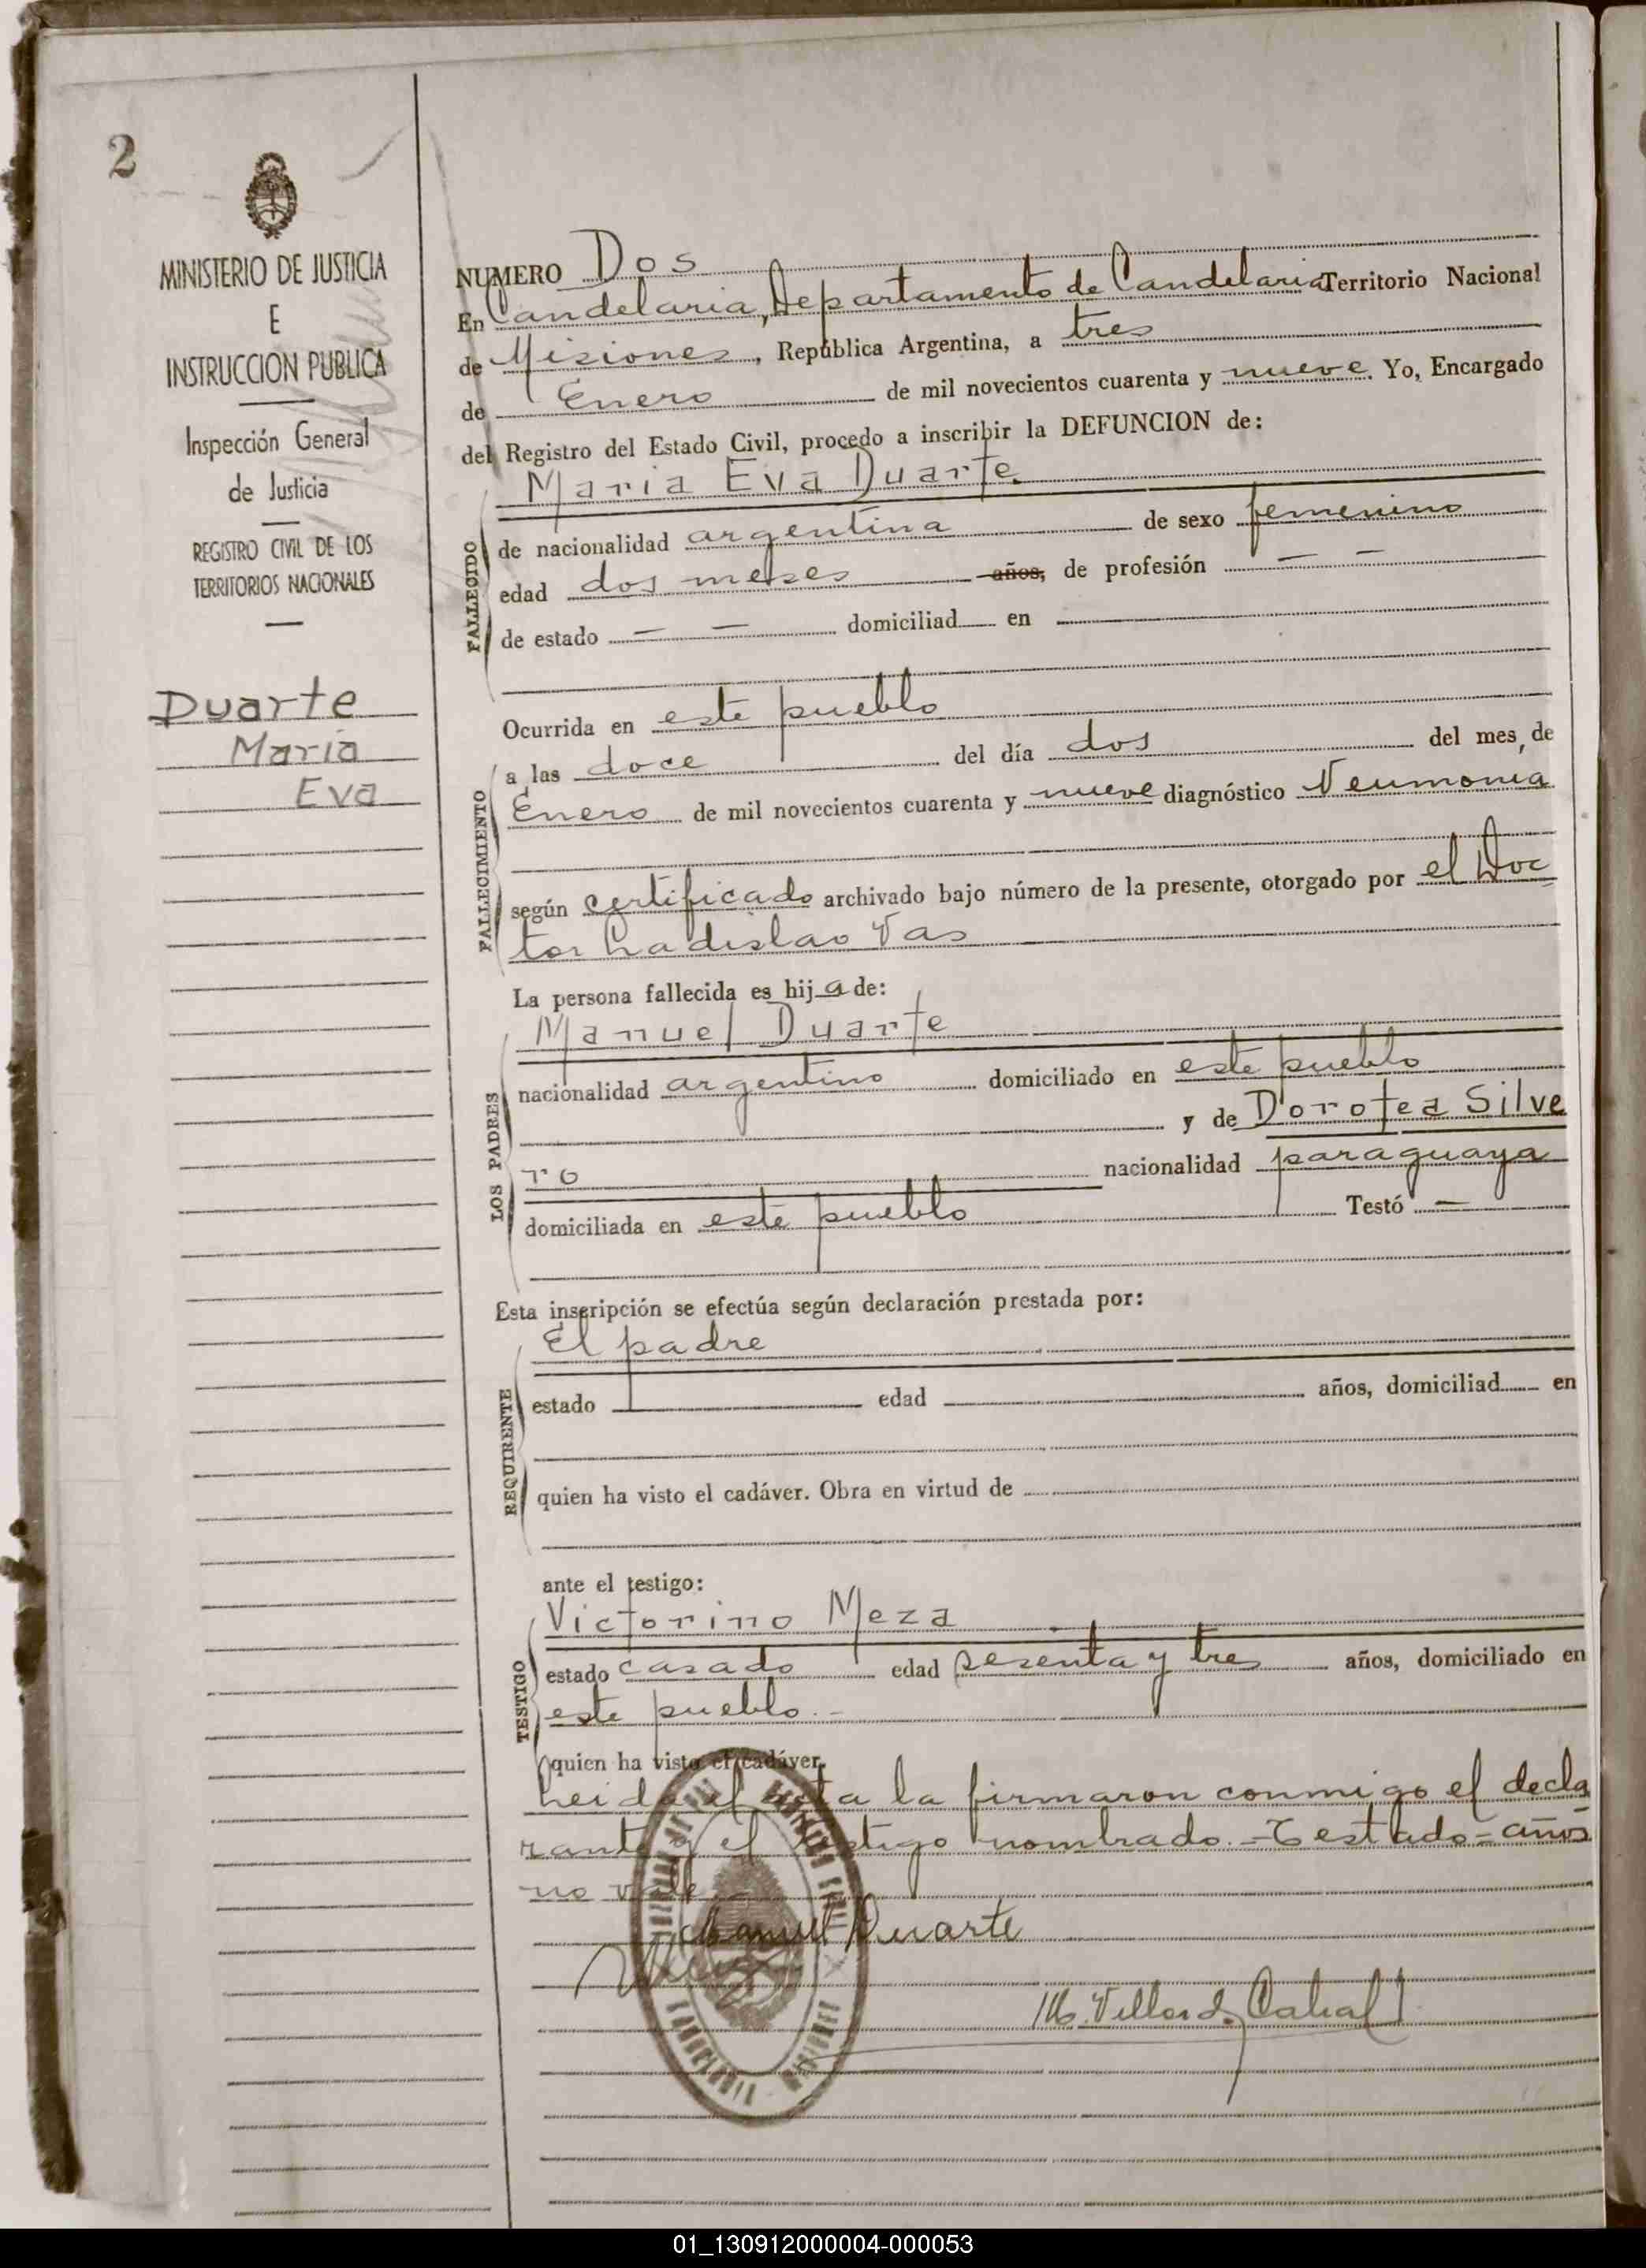 2
MINISTERIO DE JUSTICIA
E
INSTRUCCION PUBLICA
Inspección General
de Justicia
REGISTRO CIVIL DE LOS
TERRITORIOS NACIONALES
Duarte
Maria
Eva
NUMERO Dos
En Candelaria, Departamento de Candelaria Territorio Nacional
de Misiones, República Argentina, a tres
de Enero de mil novecientos cuarenta y nueve. Yo, Encargado
del Registro del Estado Civil, procedo a inscribir la DEFUNCION de:
Maria Eva Duarte
FALLECIDO
de nacionalidad argentina de sexo femenino
edad dos meses años, de profesión — —
de estado — — domiciliad en
Ocurrida en este pueblo
a las doce del día dos del mes de
FALLECIMIENTO
Enero de mil novecientos cuarenta y nueve diagnóstico Neumonia
según certificado archivado bajo número de la presente, otorgado por el Doc
tor Ladislao Vas
La persona fallecida es hija de:
Manuel Duarte
LOS PADRES
nacionalidad argentino domiciliado en este pueblo
y de Dorotea Silve
ro nacionalidad paraguaya
domiciliada en este pueblo Testó —
Esta inscripción se efectúa según declaración prestada por:
El padre
REQUIRENTE
estado edad años, domiciliad en
quien ha visto el cadáver. Obra en virtud de
ante el testigo:
Victorino Meza
TESTIGO
estado casado edad sesenta y tres años, domiciliado en
este pueblo.-
quien ha visto el cadáver.
Leida el acta la firmaron conmigo el decla
rante y el testigo nombrado.-Testado-años
no vale.-
Manuel Duarte
Cabral
01_130912000004-000053